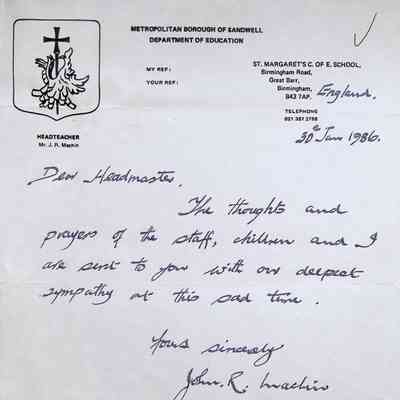 METROPOLITAN BOROUGH OF SANDWELL
DEPARTMENT OF EDUCATION
MY REF:
YOUR REF:
ST. MARGARET'S C. OF E. SCHOOL,
Birmingham Road,
Great Barr,
Birmingham,
B43 7AP. England.
TELEPHONE
021 357 2798
HEADTEACHER
Mr. J. R. Machin
30th Jan 1986.
Dear Headmaster,
The thoughts and
prayers of the staff, children and I
are sent to you with our deepest
sympathy at this sad time.
Yours sincerely
John. R. Machin